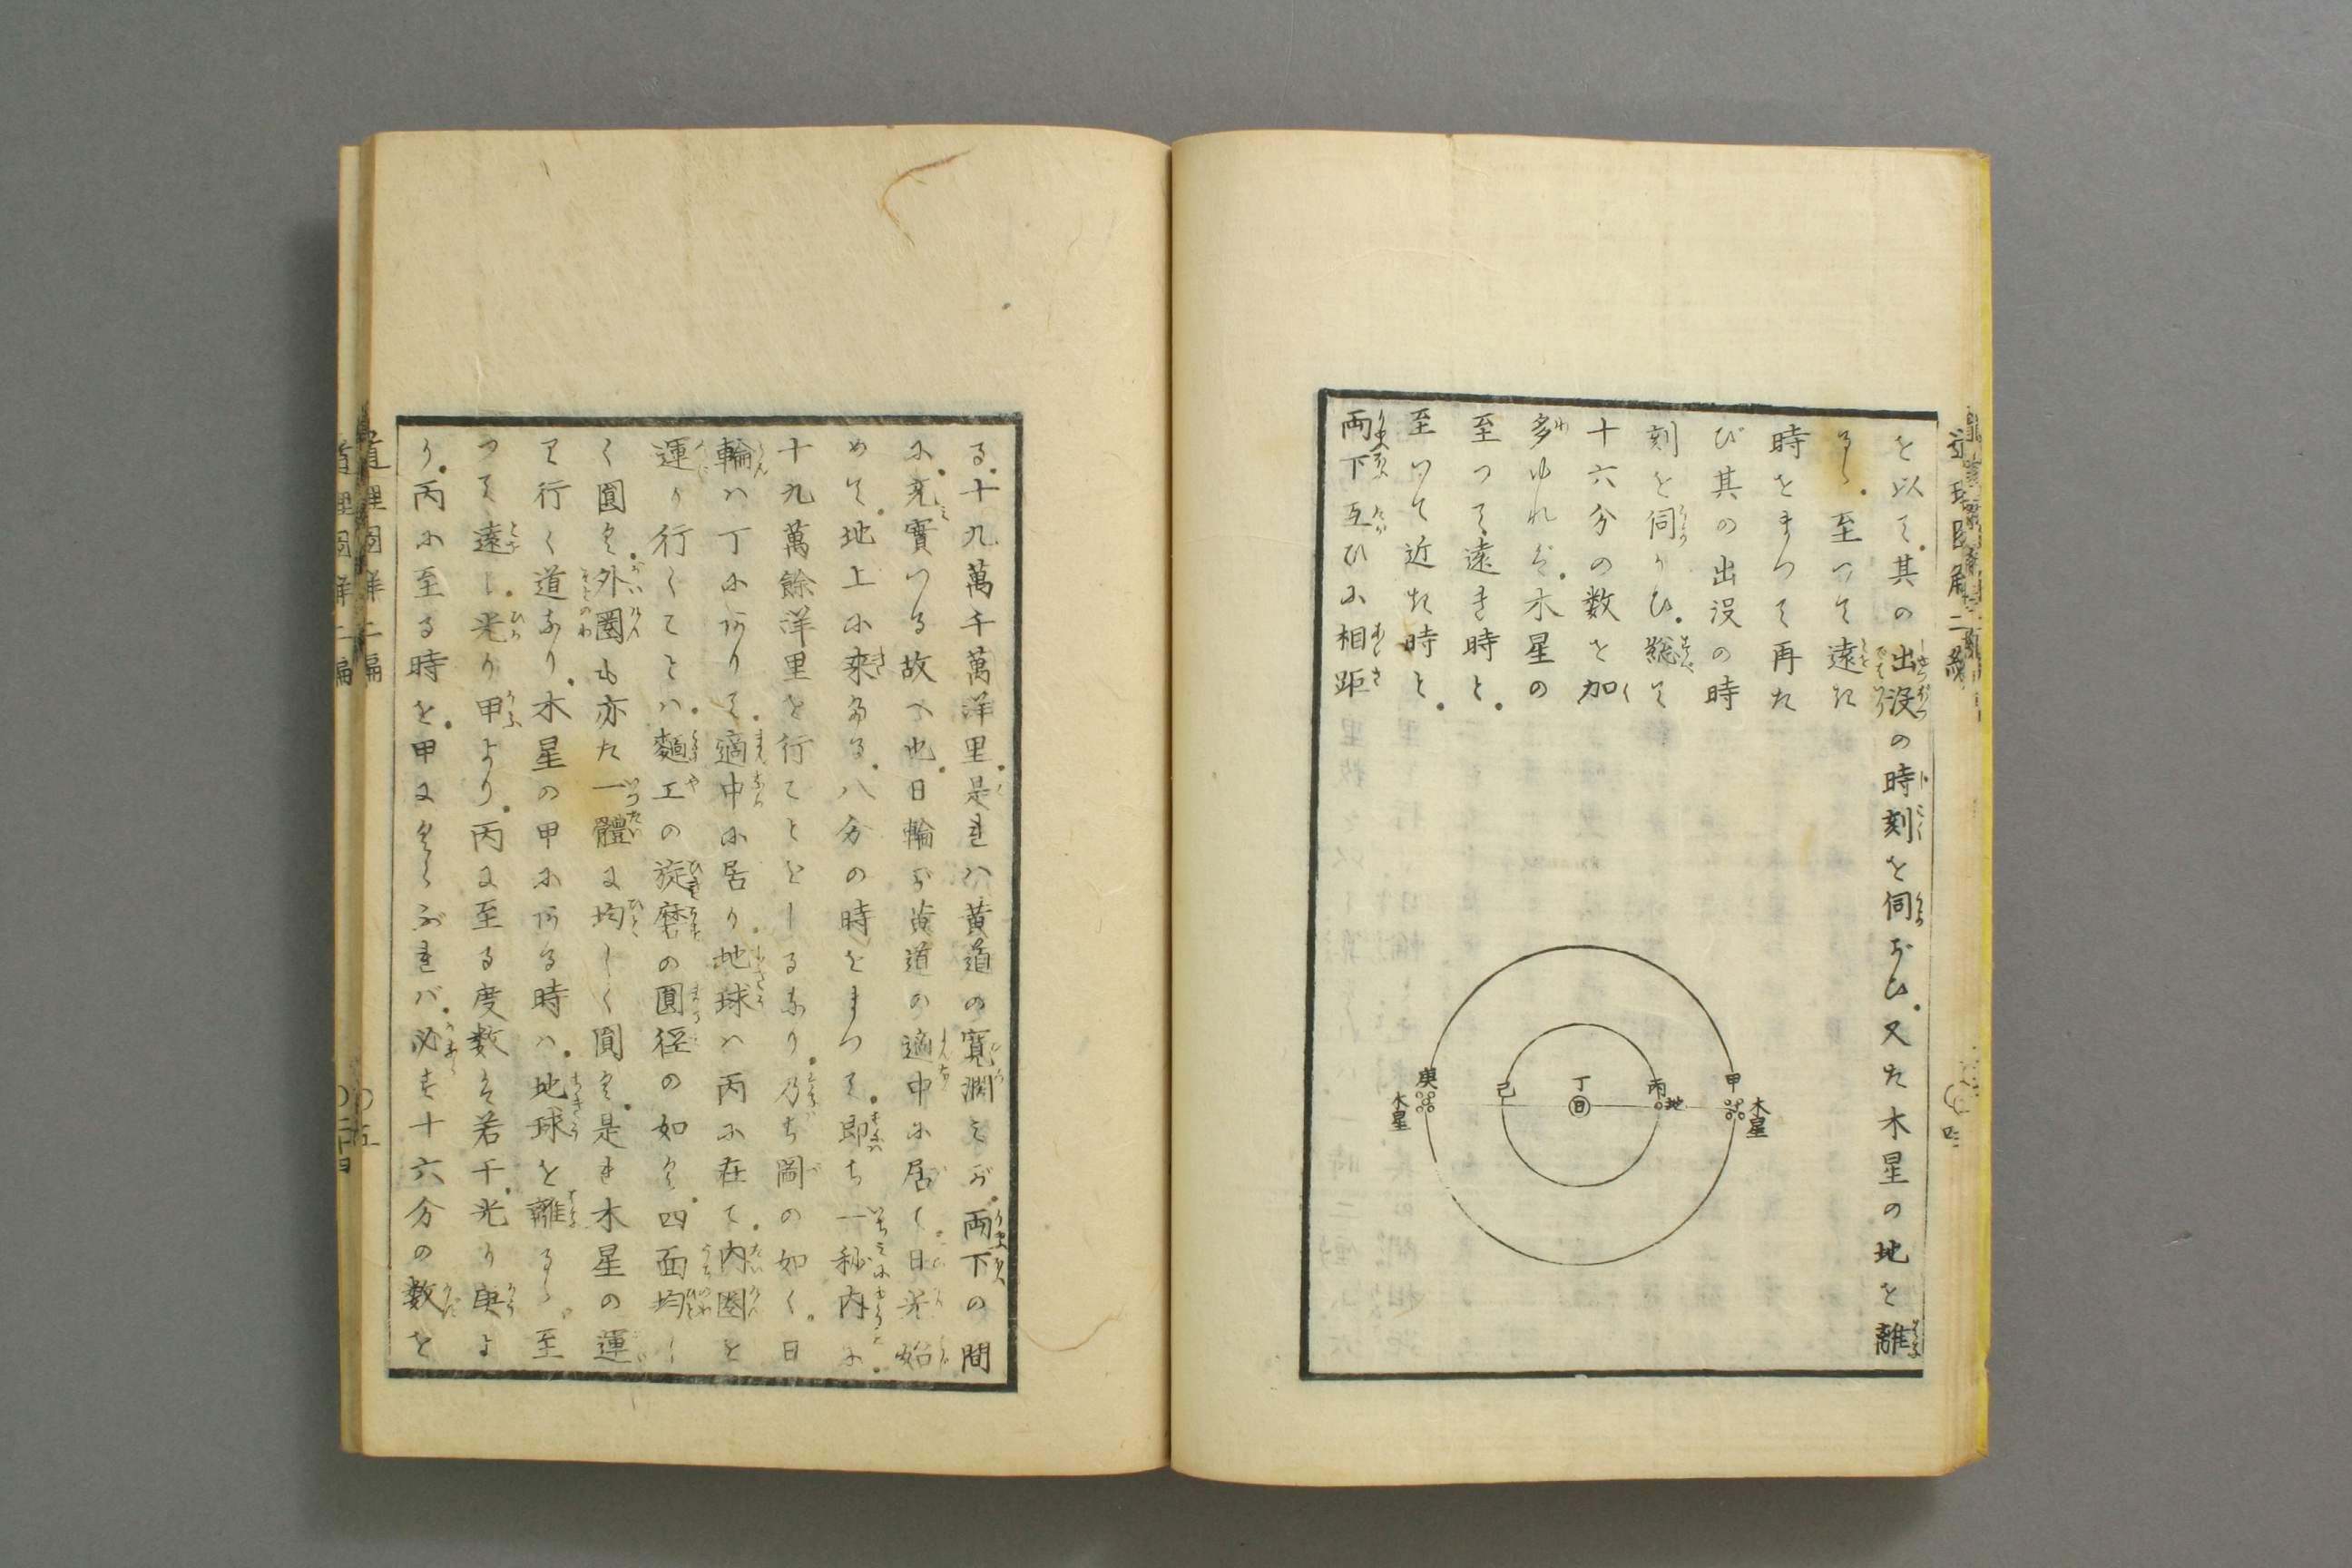 を以て其の出没の時刻を伺がひ又た木星の地を離
るゝ至つて遠き
時をまつて再た
び其の出没の時
刻を伺うひ總て
十六分の数を加
多ゆれば木星の
至つて遠き時と
至つて近き時と
両下互ひに相距
甲
木星
丙
地
丁
日
己
庚
木星
る十九萬千萬洋里是れハ黄道の寛濶さが両下の間
に充實つる故へ也日輪が黄道の適中に居て日光始
めて地上に来る八分の時をまつて即ち一秒内に
十九萬餘洋里を行てことをしるなり乃ち圖の如く日
輪ハ丁にありて適中に居り地球ハ丙に在て内圏を
運り行くことハ麺工の旋磨の圓径の如く四面均し
く圓く外圏も亦た一體に均しく圓く是れ木星の運
り行く道なり木星の甲にある時ハ地球を離るゝ至
つて遠し光り甲より丙に至る度数ハ若干光り庚よ
り丙に至る時を甲にくらぶれバ必ず十六分の数を
道理圖解二編